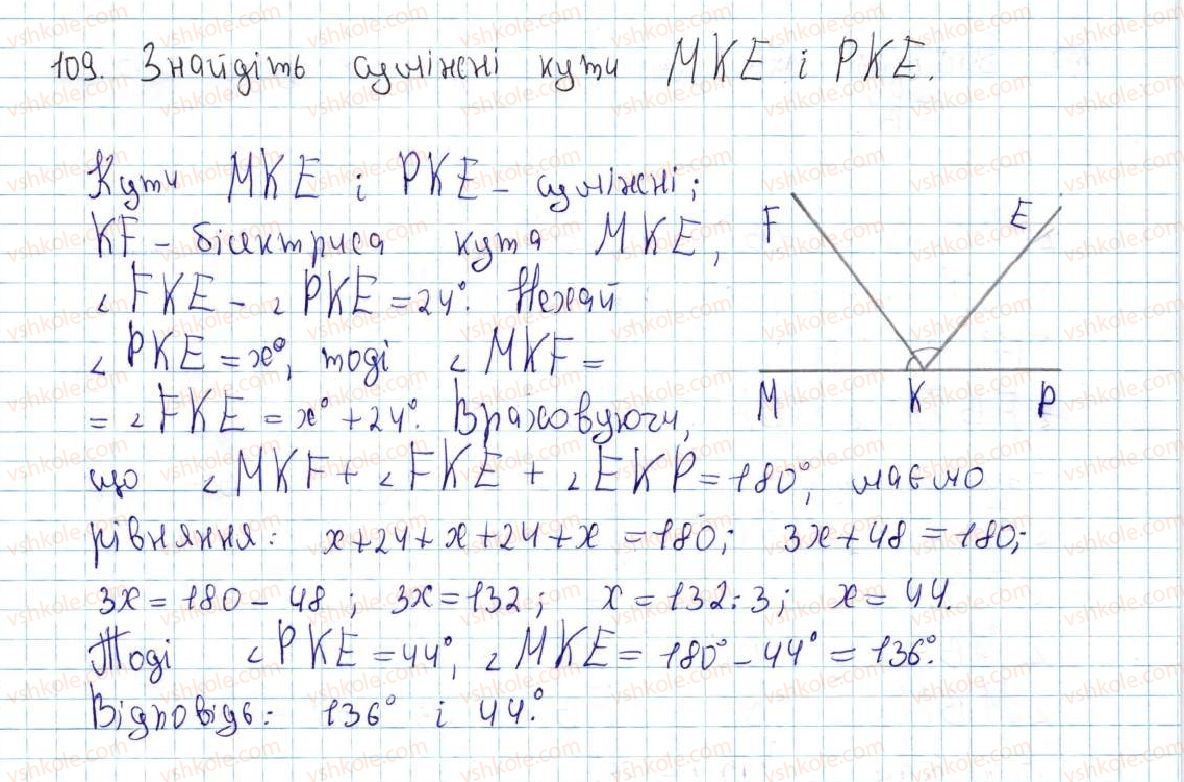 109. Знайдіть суміжні кути MKE і PKE.
Кути MKE і PKE - суміжні;
KF - бісектриса кута MKE,
∠FKE - ∠PKE = 24°. Нехай
∠PKE = x°, тоді ∠MKF =
= ∠FKE = x° + 24°. Враховуючи,
що ∠MKF + ∠FKE + ∠EKP = 180°, маємо
рівняння: x + 24 + x + 24 + x = 180; 3x + 48 = 180;
3x = 180 - 48; 3x = 132; x = 132 : 3; x = 44.
Тоді ∠PKE = 44°, ∠MKE = 180° - 44° = 136°.
Відповідь: 136° і 44°.
F E
M K P
vshkole.com